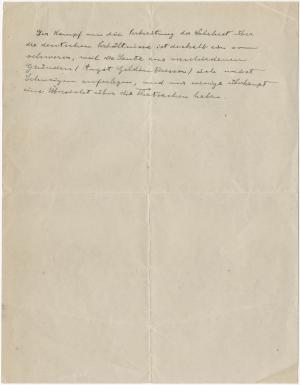 Der Kampf um die Verbreitung der Wahrheit über
die deutschen Verhältnisse ist deshalb ein so
schwerer, weil die Leute aus verschiedenen
Gründen (Angst, Geldinteressen) sich
Schweigen auferlegen, und nur wenige überhaupt
eine Übersicht über die Thatsachen haben.